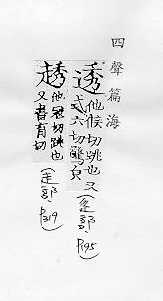 四聲篇海
透 他候切跳也又
式六切驚皃 (辵部 P195)
他寇切跳也
又音育切 (走部 P319)